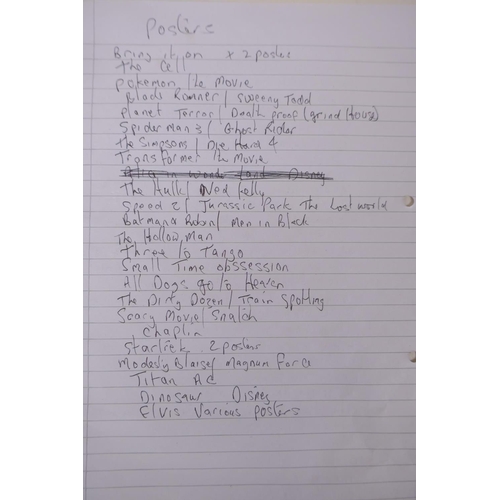 Posters
Bring it on x 2 posters
the Cell
Pokemon the Movie
Blade Runner / Sweeny Todd
Planet Terror / Death proof (grind House)
Spider Man 3 / Ghost Rider
The Simpsons / Die Hard 4
Transformers the Movie
Alice in wonderland Disney
The Hulk / Ned Kelly
Speed 2 / Jurassic Park The Lost world
Batman & Robin / Men in Black
The Hollow, Man
three to Tango
Small Time obssession
All Dogs go to Heaven
The Dirty Dozen / Train Spotting
Scary Movie / Snatch
Chaplin
Startrek 2 posters
Modesty Blaise / Magnum Force
Titan AE
Dinosaur Disney
Elvis Various posters